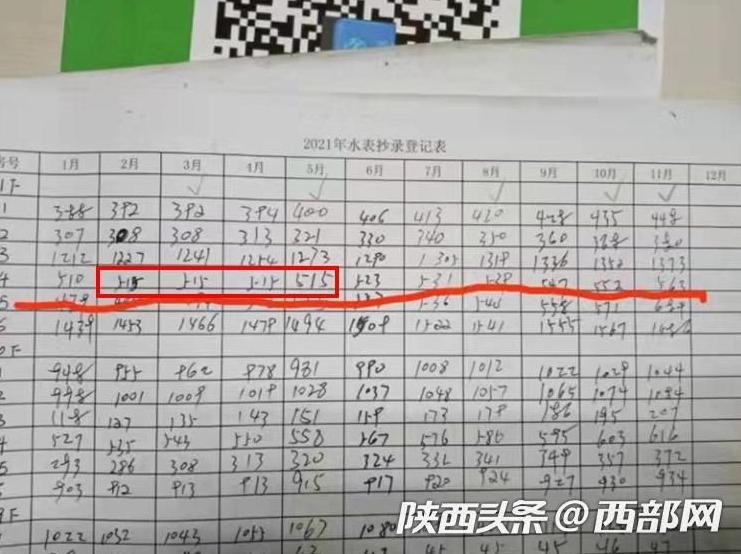 2021年水表抄录登记表
号 1月 2月 3月 4月 5月 6月 7月 8月 9月 10月 11月 12月
1F
1 388 392 392 394 400 406 413 420 428 435 448
2 307 308 308 313 321 330 340 350 360
3 1212 1227 1241 1254 1273 1290 1305 1318 1336 1352 1373
4 510 515 515 515 515 523 531 538 547 552 563
5 558 571
6 1439 1453 1466 1479 1494 1509 1522 1541 1555 1567
0F
1 948 955 962 978 981 990 1008 1012 1022 1029 1044
2 998 1001 1009 1019 1028 1037 1048 1057 1065 1074 1084
3 118 127 135 143 151 159 173 178 186 195 207
4 527 535 543 550 558 567 576 586 595 603 616
5 293 286 308 313 320 324 332 341 349 357 372
6 903 912 913 913 915 917 920 924 927 930 934
9F
1 1022 1032 1043 1053 1067 1080
45 45 45 45
陕西头条@西部网